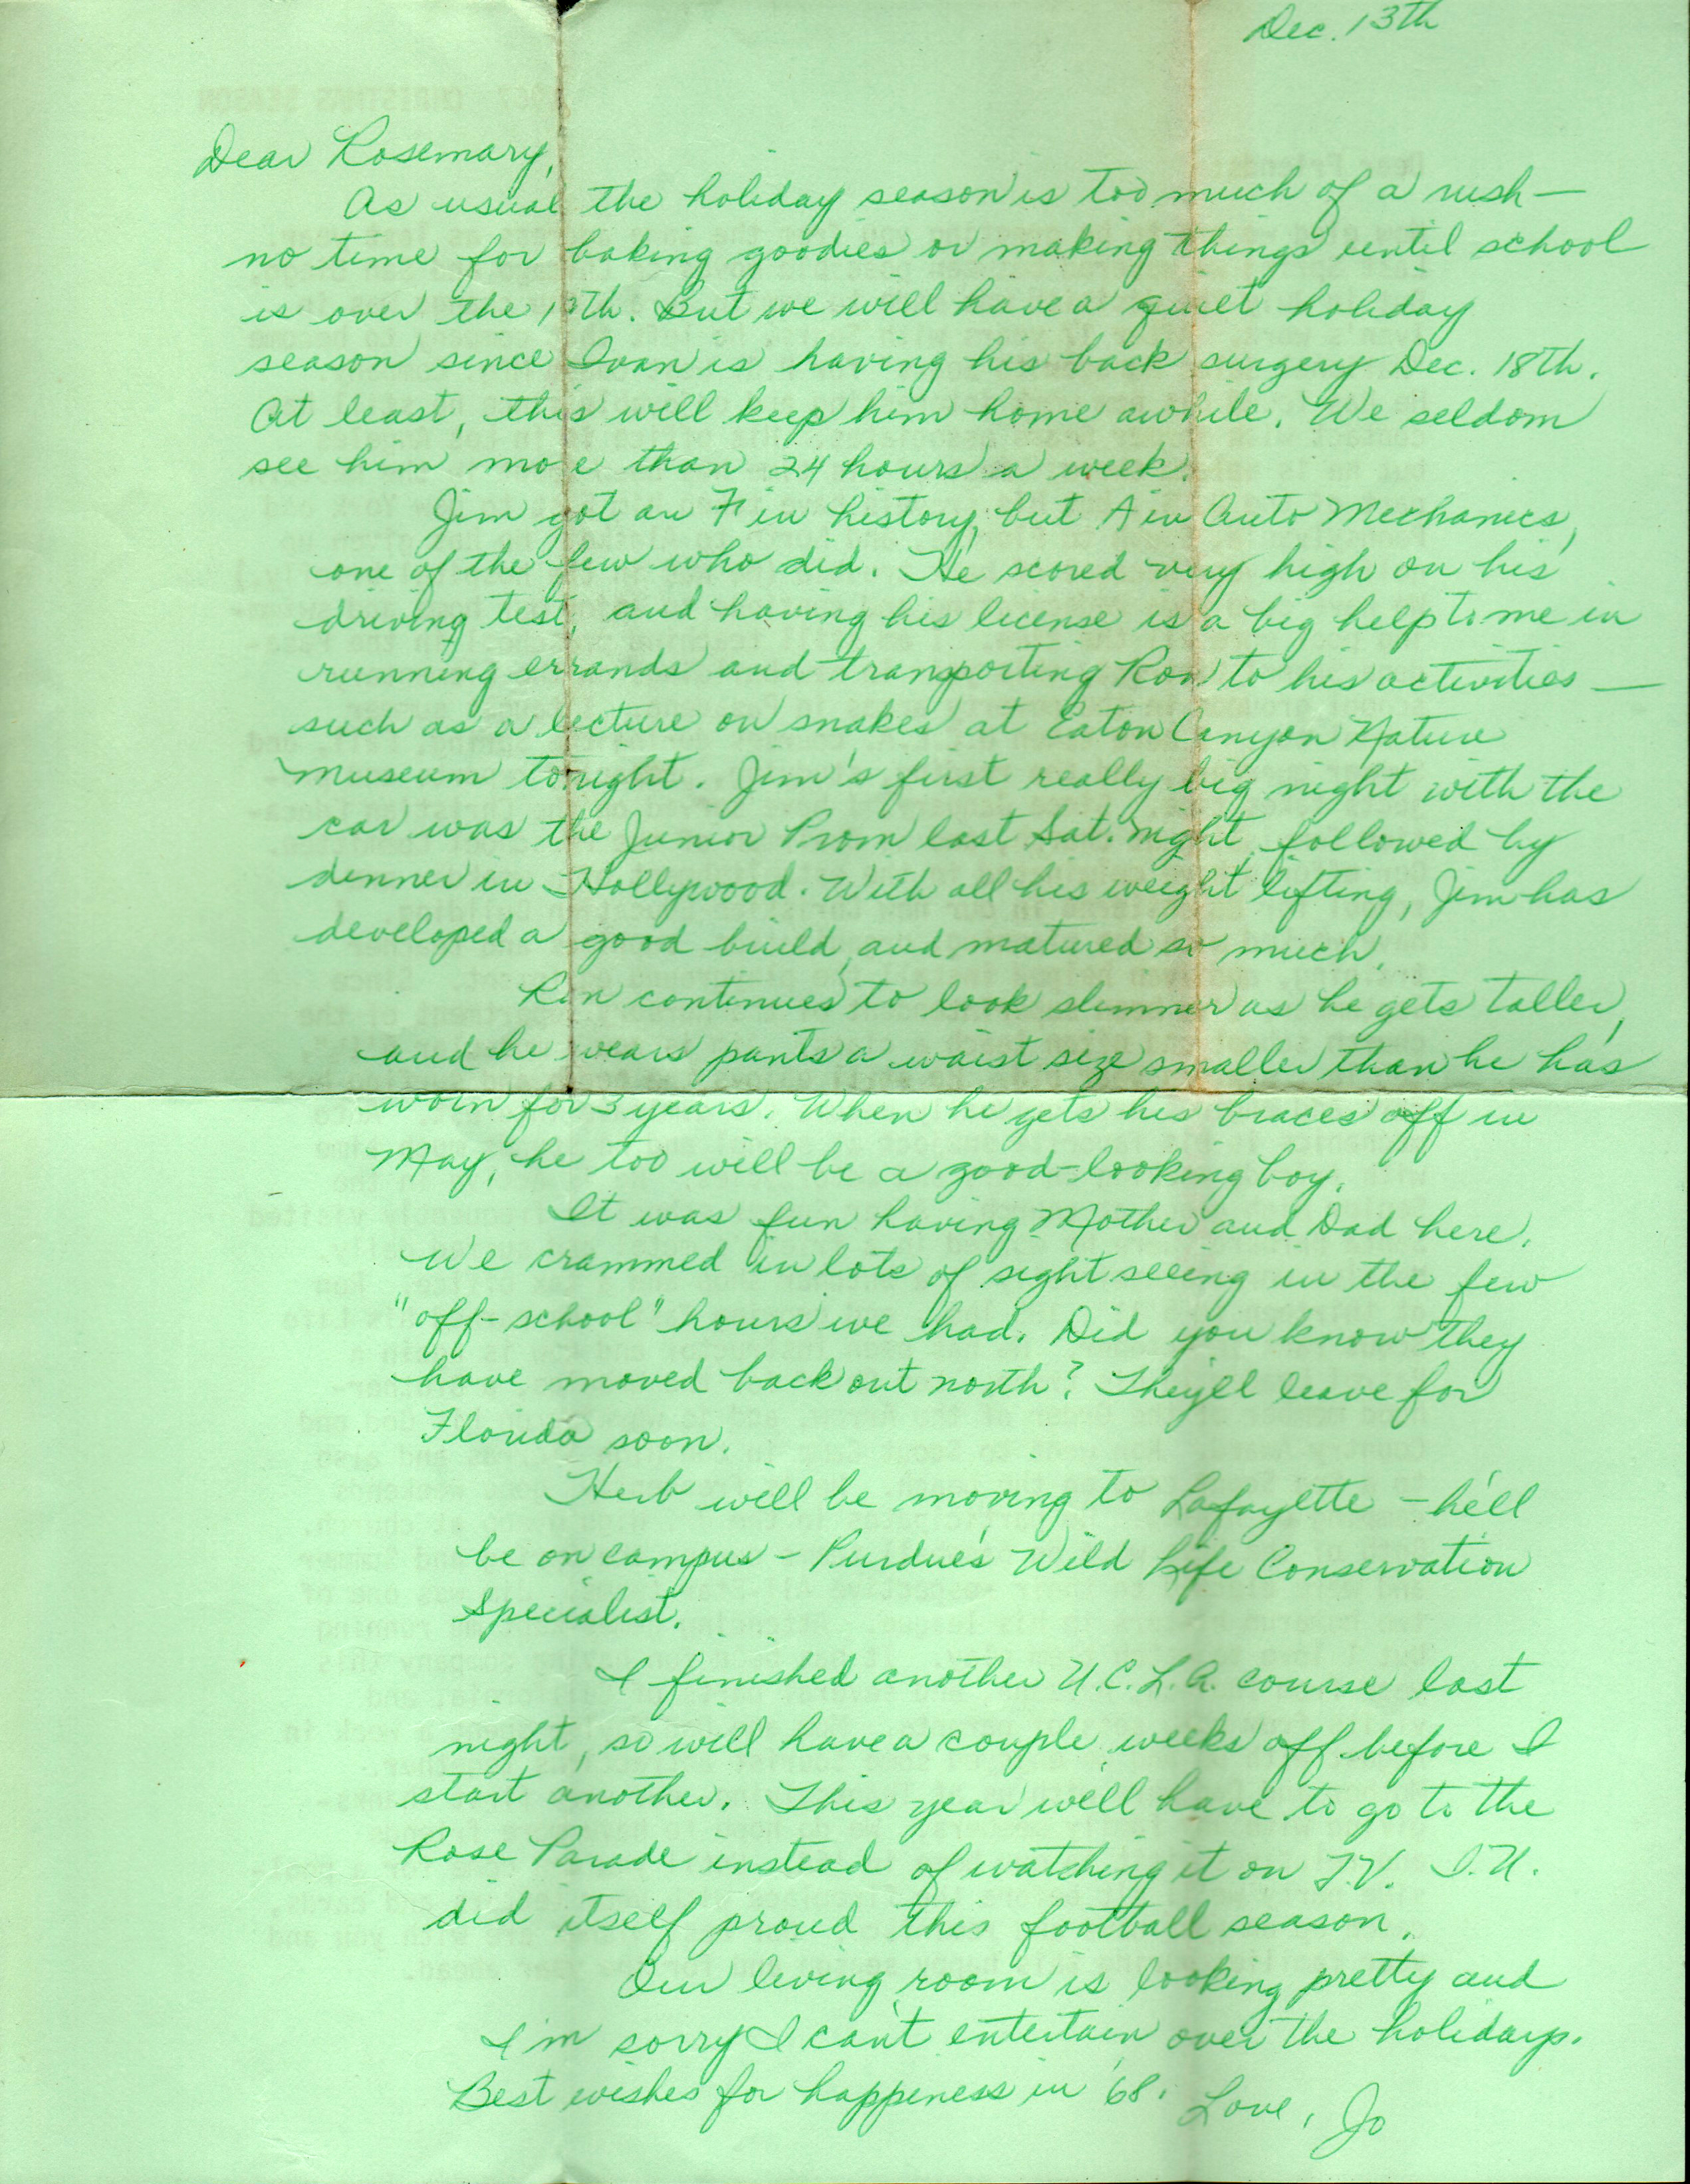 Dec. 13th
Dear Rosemary,
As usual the holiday season is too much of a rush —
no time for baking goodies or making things until school
is over the But we will have a quiet holiday
season since Ivan is having his back surgery Dec. 18th.
At least, this will keep him home awhile. We seldom
see him more than 24 hours a week.
Jim got an F in history, but A in Auto Mechanics,
one of the few who did. He scored very high on his
driving test, and having his license is a big help to me in
running errands and transporting Ron to his activities —
such as a lecture on snakes at Eaton Canyon Nature
Museum tonight. Jim's first really big night with the
car was the Junior Prom last Sat. night, followed by
dinner in Hollywood. With all his weight lifting, Jim has
developed a good build, and matured so much.
Ron continues to look slimmer as he gets taller,
and he wears pants a waist size smaller than he has
worn for 3 years. When he gets his braces off in
May, he too will be a good-looking boy.
It was fun having Mother and Dad here.
We crammed in lots of sight seeing in the few
"off-school" hours we had. Did you know they
have moved back out north? They'll leave for
Florida soon.
Herb will be moving to Lafayette — he'll
be on campus — Purdue's Wild Life Conservation
Specialist.
I finished another U.C.L.A. course last
night, so will have a couple weeks off before I
start another. This year we'll have to go to the
Rose Parade instead of watching it on T.V. I.U.
did itself proud this football season.
Our living room is looking pretty and
I'm sorry I can't entertain over the holidays.
Best wishes for happiness in '68. Love, Jo